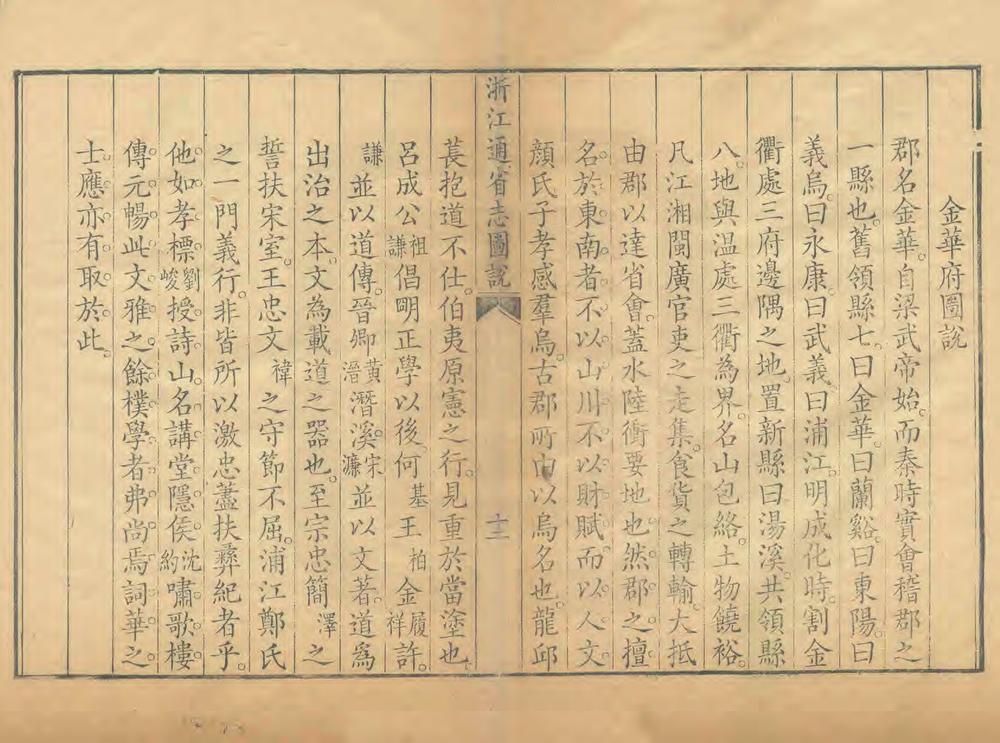 金華府圖說
郡名金華自梁武帝始而秦時實會稽郡之
一縣也舊領縣七曰金華曰蘭谿曰東陽曰
義烏曰永康曰武義曰浦江明成化時割金
衢處三府邊隅之地置新縣曰湯溪共領縣
八地與温處三衢為界名山包絡土物饒裕
凡江湘閩廣官吏之走集食貨之轉輸大抵
由郡以達省會蓋水陸衝要地也然郡之擅
名於東南者不以山川不以財賦而以人文
顔氏子孝感羣烏古郡所由以烏名也龍邱
浙江通省志圖說
十三
萇抱道不仕伯夷原憲之行見重於當塗也
呂成公祖謙倡明正學以後何基王柏金履祥許
謙並以道傳晉卿黃溍潛溪宋濂並以文著道為
出治之本文為載道之器也至宗忠簡澤之
誓扶宋室王忠文褘之守節不屈浦江鄭氏
之一門義行非皆所以激忠藎扶彝紀者乎
他如孝標劉峻授詩山名講堂隱侯沈約嘯歌樓
傳元暢此文雅之餘樸學者弗尚焉詞華之
士應亦有取於此